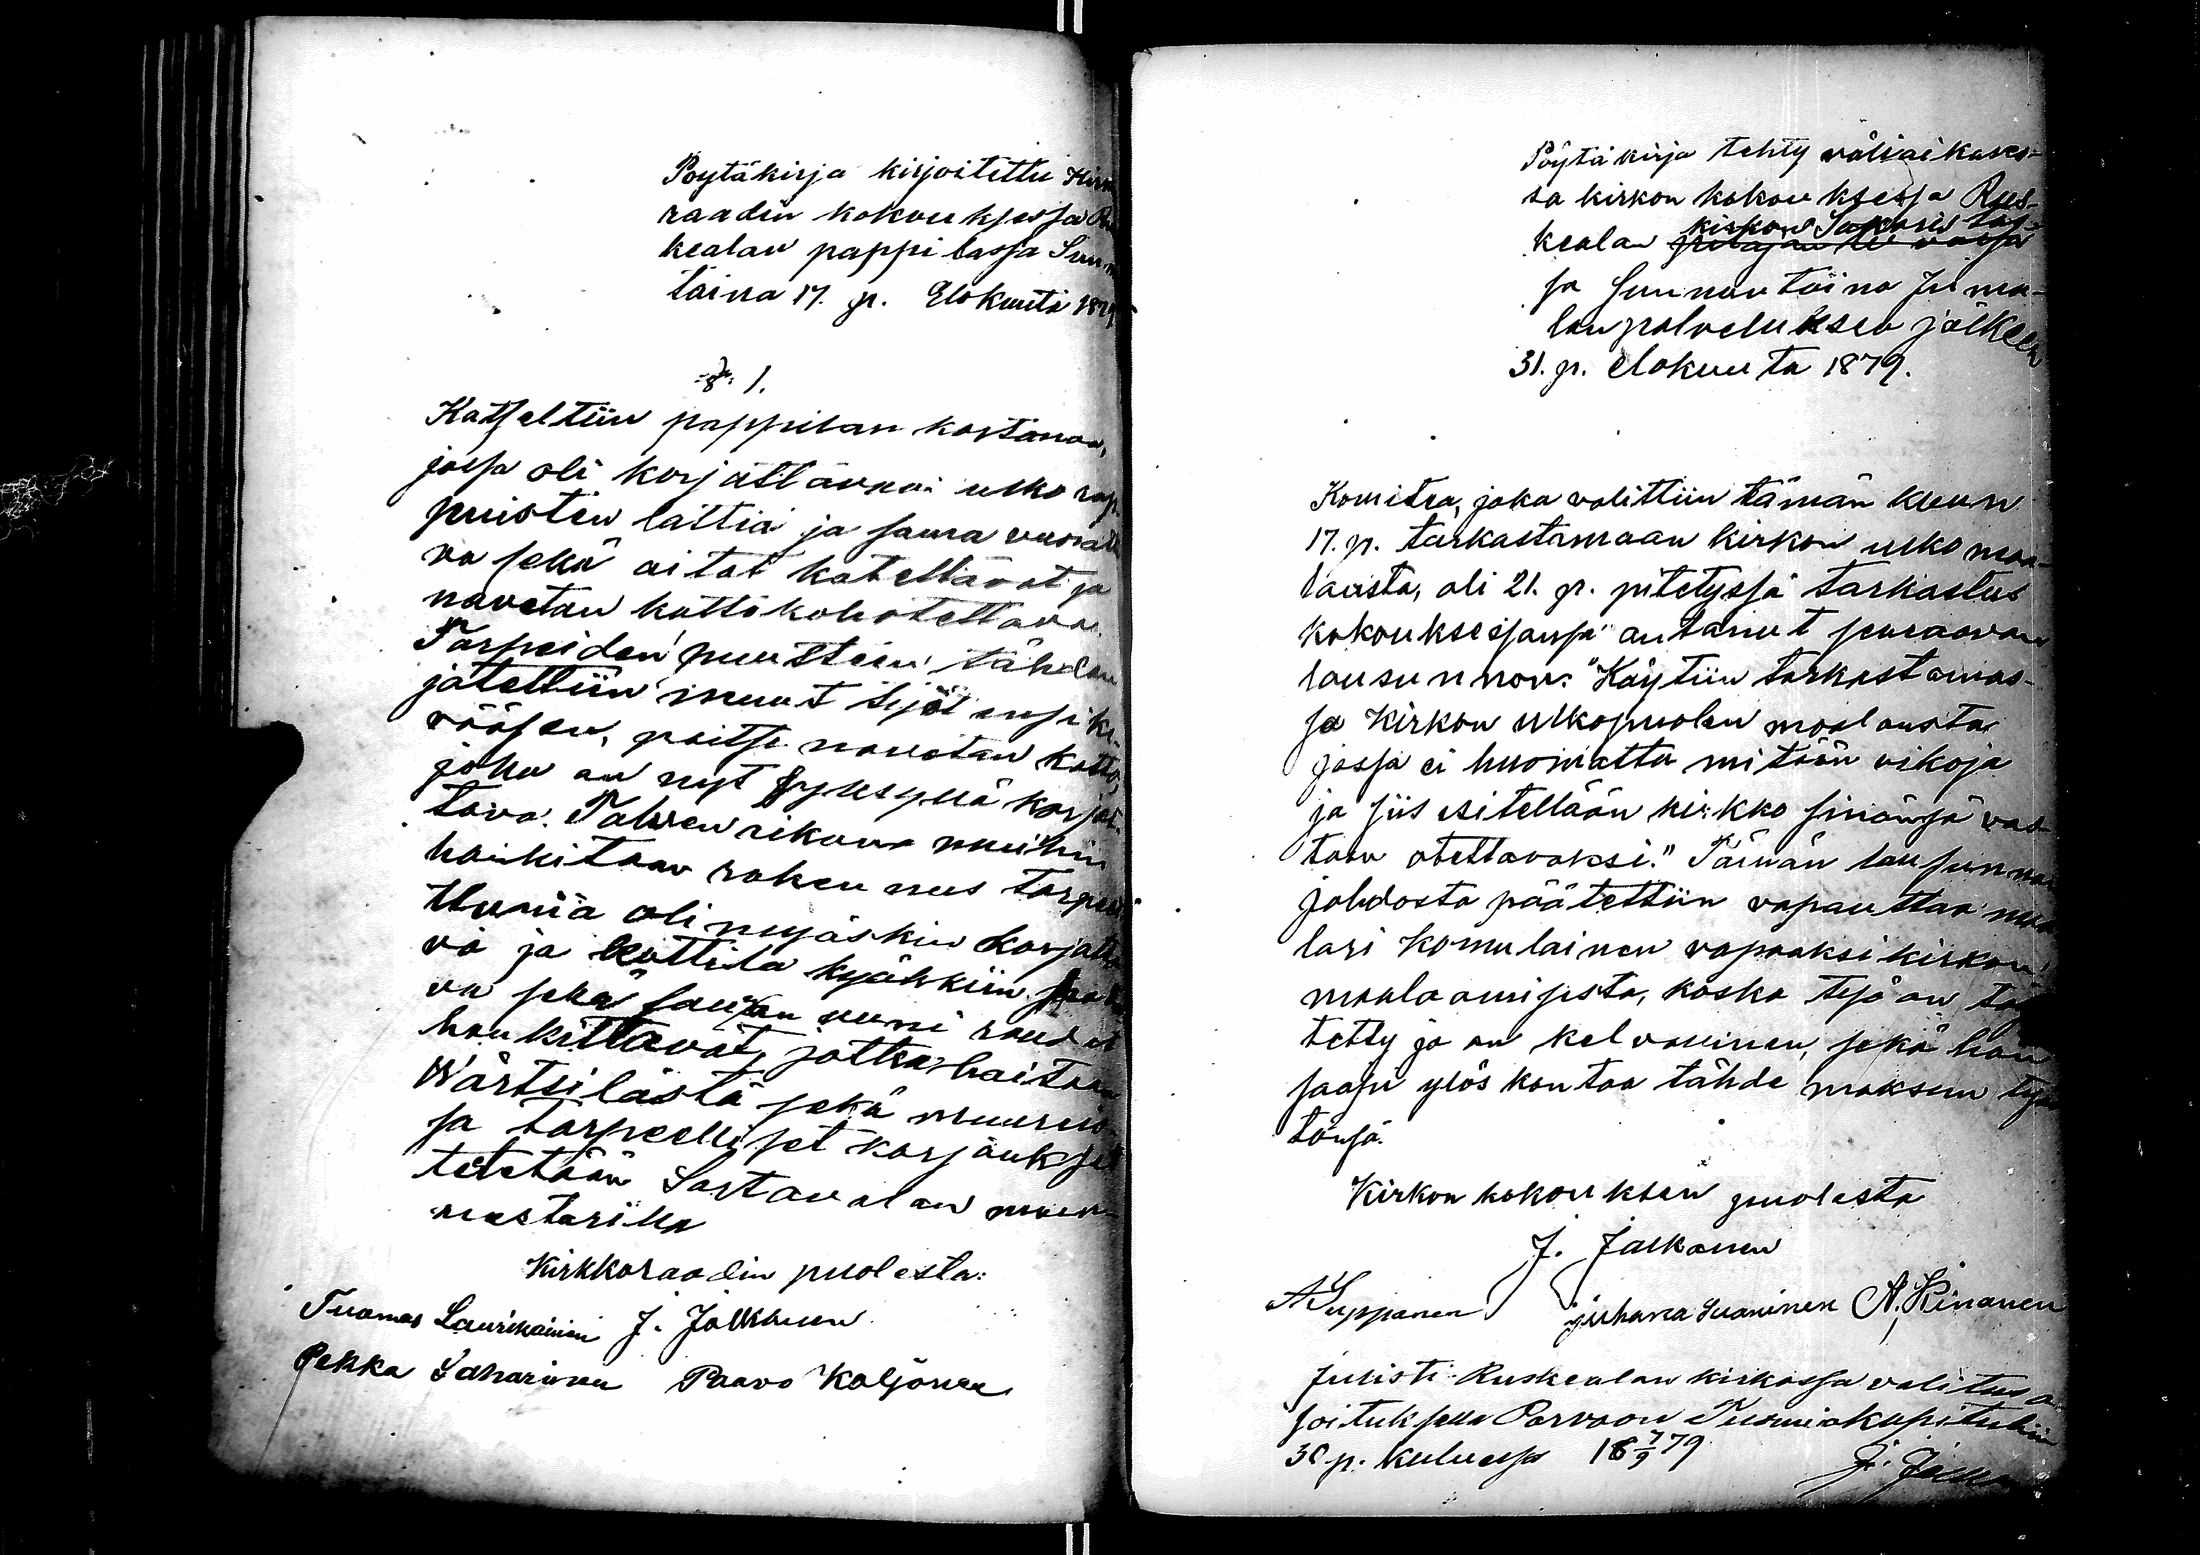 Pöytäkirja kirjoitettu Kirk
raadin kokouksessa Ru
kealan pappilassa Sunn
taina 17. p. Elokuuta 1879
§ 1.
Katseltiin pappilan kartanoa,
jossa oli korjattavana ulko rap
puisten lattia ja sauna
va sekä aitat katettavat ja
navetan katto kohotettava.
Tarpeiden puutteen tähden
jätettiin muut työt ensi ke-
vääsen, paitse navetan katto,
joka on nyt syksyllä korjat-
tava. Talven aikana muihin
hankitaan rakennus tarpeet
Uunia oli myöskin korjatta
vä ja kyökkiin
va sekä saunan uuni raudat
hankittavat, jotka haitaan
Wärtsilästä sekä muurein
ja tarpeelliset korjaukset
tetetään Sortavalan muur-
mestarilla
Kirkkoraadin puolesta:
Tuomas Laurikainen J. Jalkanen
Pekka Saharinen Paavo Koljonen
Pöytäkirja tehty väliaikases-
sa kirkon kokouksessa Rus-
kealan kirkon Sakaris tos-
sa Sunnuntaina Juma-
lanpalveluksen jälkeen
31. p. elokuuta 1879.
Komitea, joka valittiin tämän kuun
17. p. tarkastamaan kirkon ulko maa-
lausta, oli 21. p. pitetyssä tarkastus
kokouksessansa antanut seuraavan
lausunnon: "Käytiin tarkastamas-
sa Kirkon ulkopuolen maalausta
jossa ei huomattu mitään vikoja
ja siis esitellään kirkko sinänsä vas-
taan otettavaksi." Tämän lausunnon
johdosta päätettiin vapauttaa maa
lari Komulainen vapaaksi kirkon
maalaamisesta, koska työ on täy
tetty ja on kelvollinen, sekä hän
saapi ylös kantaa tähde maksun työs
tänsä.
Kirkon kokouksen puolesta
J. Jalkanen
A Suppanen juhana Suaninen A. Kinanen
Julisti Ruskealan kirkossa valitus o
soituksella Porvoon Tuomiokapituliin
30 p. kuluessa 18 7/9 79
J. Jalka